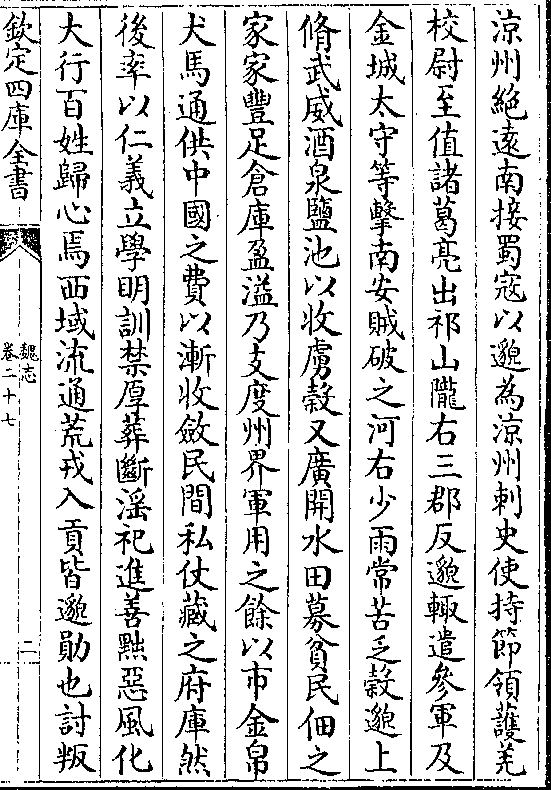 涼州絶遠南接蜀寇以邈為涼州刺史使持節領䕶羌
校尉至值諸葛亮出祁山隴右三郡反邈輙遣參軍及
金城太守等擊南安賊破之河右少雨常苦乏穀邈上
脩武威酒泉鹽池以收虜穀又廣開水田募貧民佃之
家家豐足倉庫盈溢乃支度州界軍用之餘以市金帛
犬馬通供中國之費以漸收斂民間私仗藏之府庫然
後率以仁義立學明訓禁厚葬斷淫祀進善黜惡風化
大行百姓歸心焉西域流通荒戎入貢皆邈勛也討叛
欽定四庫全書
魏志
卷二十七
二